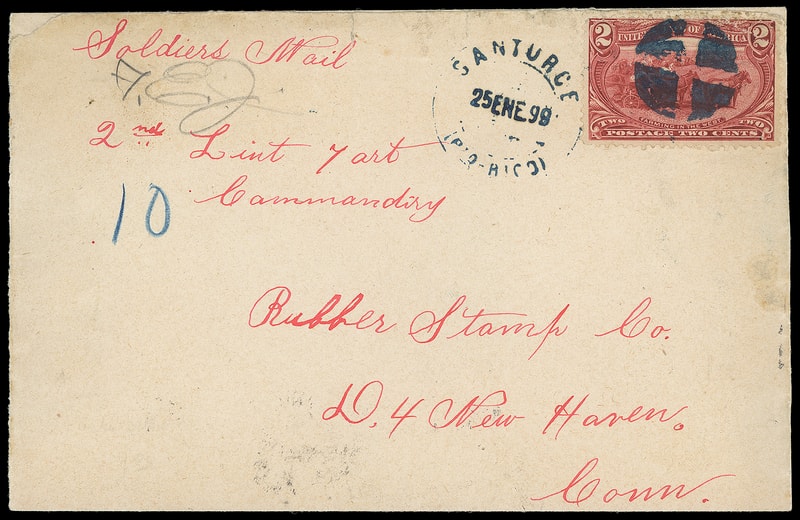 Soldiers Mail
2nd Lint 7 art
Commandiry
10
SANTURCE
25 ENE.99
(P'O-RICO)
2 UNITED STATES OF AMERICA 2
FARMING IN THE WEST.
TWO TWO
POSTAGE TWO CENTS
Rubber Stamp Co.
D, 4 New Haven.
Conn.